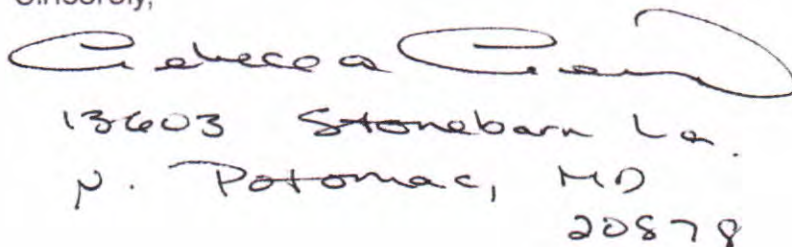 Sincerely,
Rebecca
13603 Stonebarn La.
N. Potomac, MD
20878